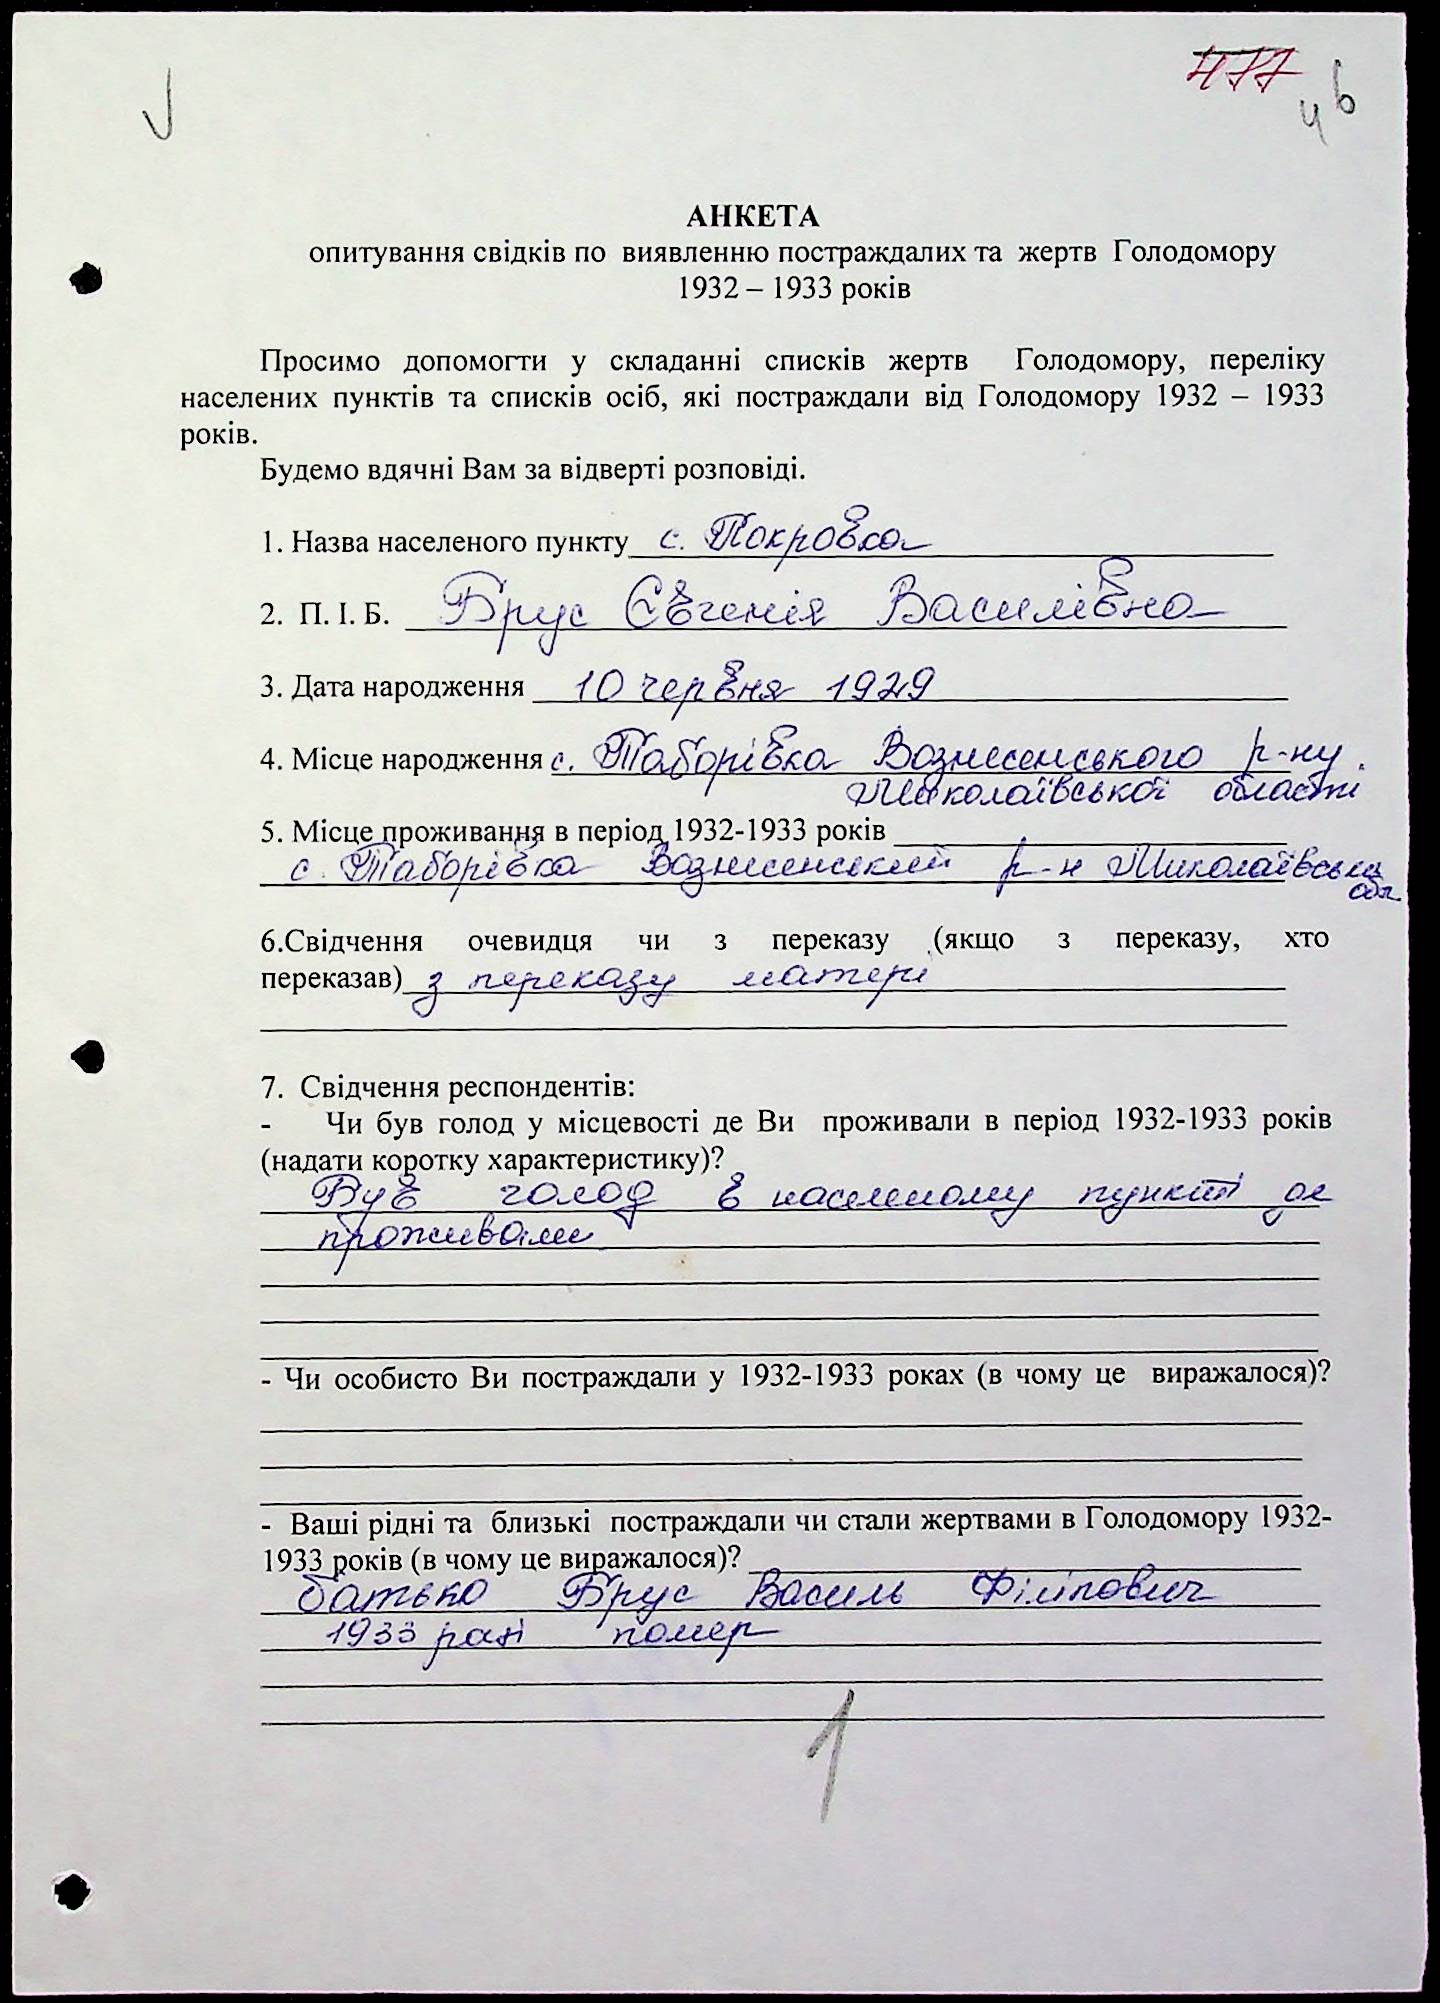 477
46
АНКЕТА
опитування свідків по виявленню постраждалих та жертв Голодомору
1932 – 1933 років
Просимо допомогти у складанні списків жертв Голодомору, переліку
населених пунктів та списків осіб, які постраждали від Голодомору 1932 – 1933
років.
Будемо вдячні Вам за відверті розповіді.
1. Назва населеного пункту с. Покровка
2. П. І. Б. Брус Євгенія Василівна
3. Дата народження 10 червня 1929
4. Місце народження с. Таборівка Вознесенського р-ну.
Миколаївської області
5. Місце проживання в період 1932-1933 років
с. Таборівка Вознесенський р-н Миколаївська
обл
6.Свідчення очевидця чи з переказу (якщо з переказу, хто
переказав) з переказу матері
7. Свідчення респондентів:
- Чи був голод у місцевості де Ви проживали в період 1932-1933 років
(надати коротку характеристику)?
Був голод в населеному пункті де
проживали
- Чи особисто Ви постраждали у 1932-1933 роках (в чому це виражалося)?
- Ваші рідні та близькі постраждали чи стали жертвами в Голодомору 1932-
1933 років (в чому це виражалося)?
батько Брус Василь Філіпович
1933 році помер
1